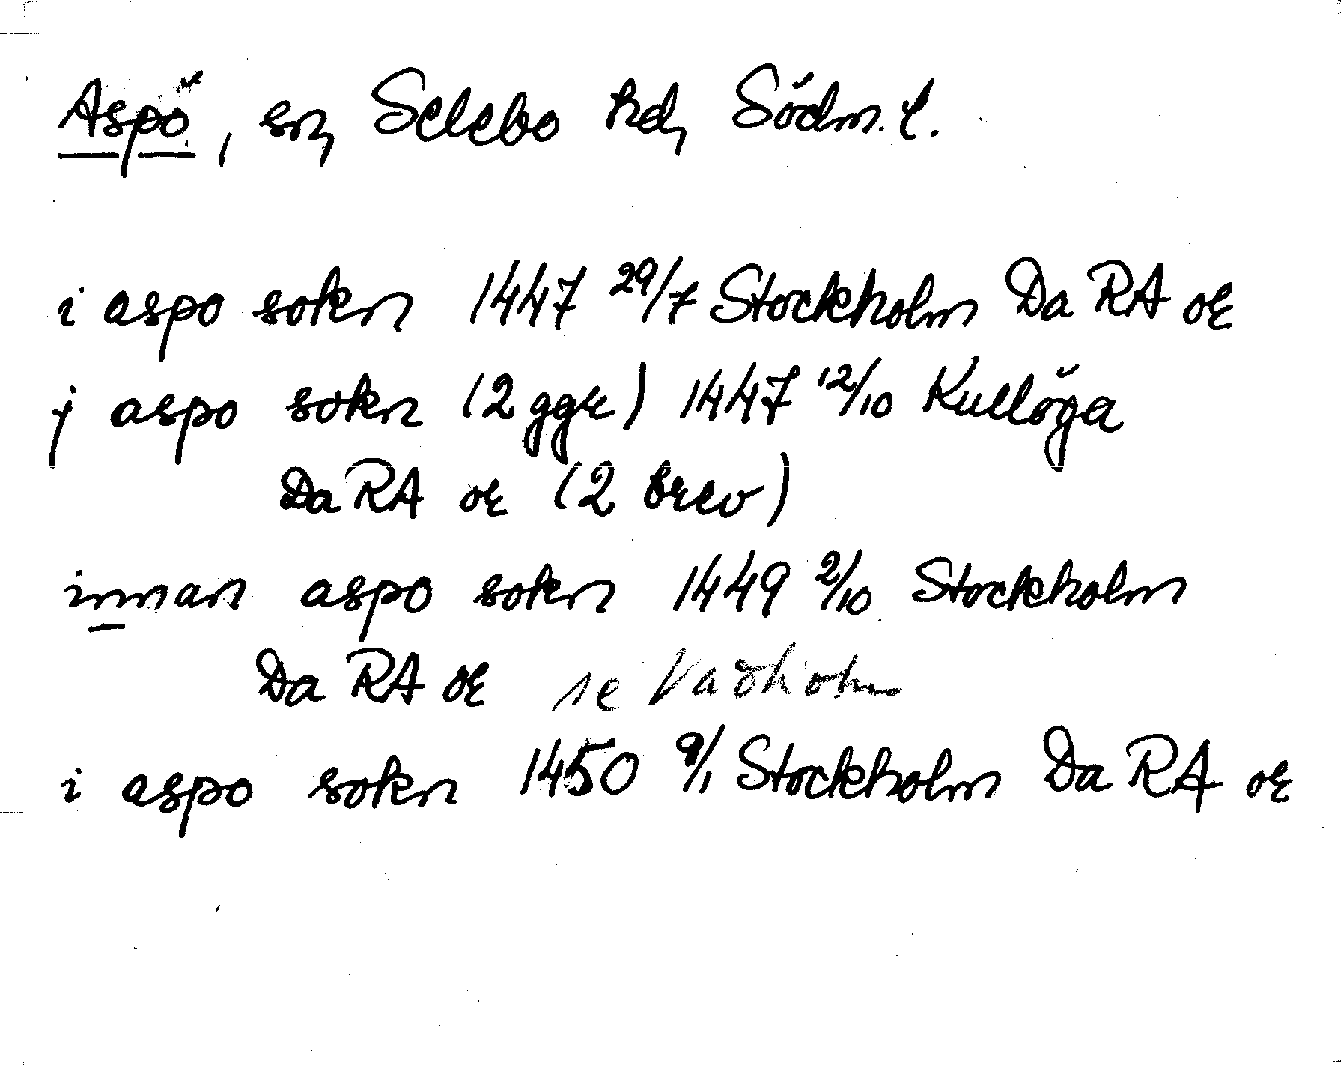 Aspö, sn, Selebo hd, Södm. l.
i aspo sokn 1447 29/7 Stockholm Da RA or
j aspo sokn (2 ggr) 1447 12/10 Kullöga
Da RA or (2 brev)
innan aspo sokn 1449 2/10 Stockholm
Da RA or se Vadholm
i aspo sokn 1450 9/1 Stockholm Da RA or